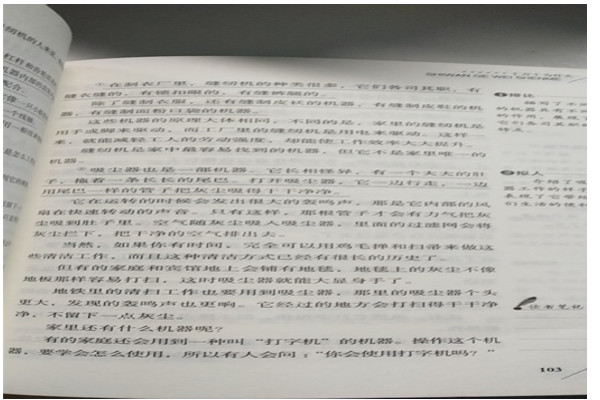 SHINAN GE WEI SHENME
①在制衣厂里，缝纫机的种类很多，它们各司其职，有
缝衣缝的，有锁扣眼的，有缝裤腿的。
除了缝制衣服，还有缝制皮袄的机器，有缝制皮鞋的机
器，有缝制面粉口袋的机器。
这些机器的原理大体相同，不同的是，家里的缝纫机是
用手或脚来驱动，而工厂里的缝纫机是用电来驱动。这样一
来，就能减轻工人的劳动强度，却能使工作效率大大提升。
缝纫机是家中最容易找到的机器，但它不是家里唯一的
机器。
②吸尘器也是一部机器。它长相怪异，有一个大大的肚
子，拖着一条长长的尾巴。打开吸尘器，它一边行走，一边
用尾巴一样的管子把灰尘吸得干干净净。
它在运转的时候会发出很大的轰鸣声，那是它内部的风
扇在快速转动的声音。只有这样，那根管子才会有力气把灰
尘吸到肚子里。空气随灰尘吸入吸尘器，里面的过滤网会将
灰尘拦下，把干净的空气排出去。
当然，如果你有时间，完全可以用鸡毛掸和扫帚来做这
些清洁工作，而且这种清洁方式已经有很长的历史了。
但有的家庭和宾馆地上会铺有地毯，地毯上的灰尘不像
地板那样容易打扫，这时吸尘器就能大显身手了。
地铁里的清扫工作也要用到吸尘器，那里的吸尘器个头
更大，发现的轰鸣声也更响。它经过的地方会打扫得干干净
净，不留下一点灰尘。
家里还有什么机器呢？
有的家庭还会用到一种叫“打字机”的机器。操作这个机
器，要学会怎么使用，所以有人会问：“你会使用打字机吗？”
①排比
②拟人
读书笔记
103